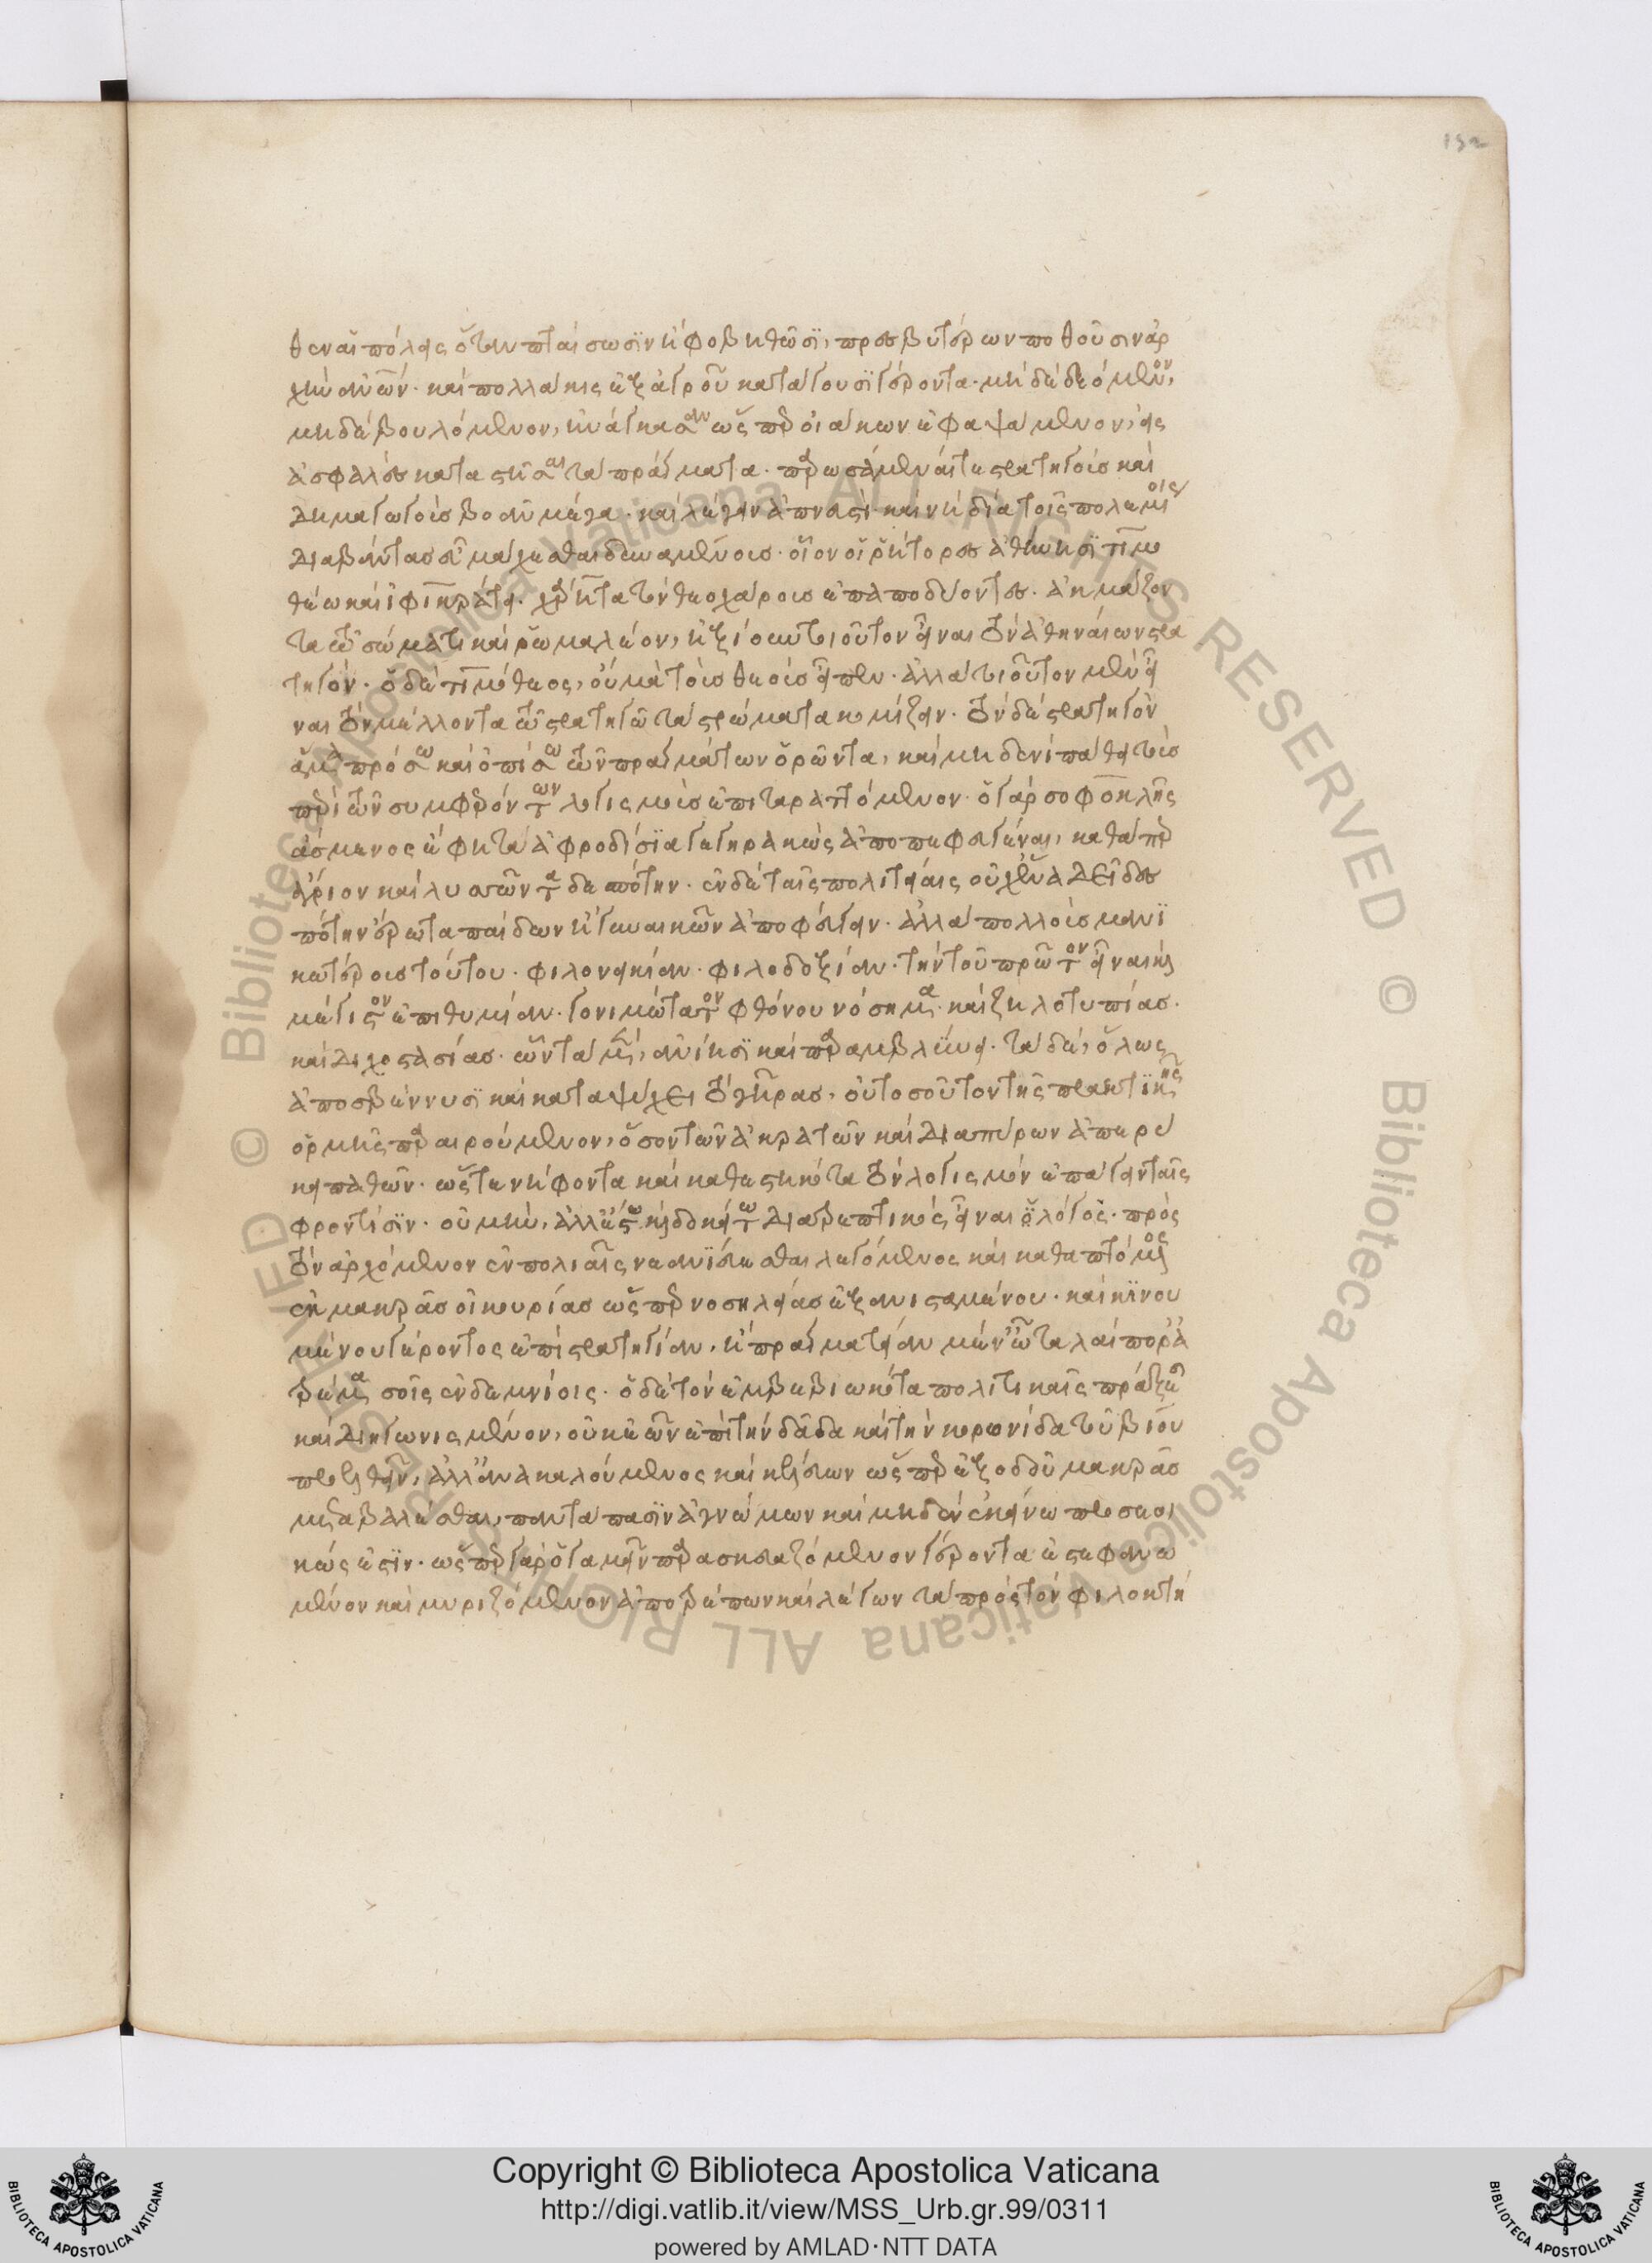 152
θεν αἱ πόλεις ὅταν πταίσωσιν ἢ φοβηθῶσι, πρεσβυτέρων ποθοῦσιν ἀρ
χὴν ἀνδρῶν· καὶ πολλάκις ἐξ ἀγροῦ κατάγουσι γέροντα· μὴ δὲ δεόμενον,
μηδὲ βουλόμενον, ἠνάγκασαν ὥσπερ οἰάκων ἐφαψάμενον, εἰς
ἀσφαλὲς καταστῆσαι τὰ πράγματα· παρωσάμεναί τε στρατηγοὺς καὶ
δημαγωγοὺς βοᾶν μέγα· καὶ λέγειν ἀπνευστὶ· καὶ νὴ δία τοῖς πολεμίοις
διαβάντας εὖ μάχεσθαι δυναμένους· οἷον οἱ ῥήτορες ἀθήνησι τιμο
θέω καὶ ἰφικράτει· χάρητα τὸν θεοχάρους ἐπαποδύοντες· ἀκμάζον
τα τῶ σώματι καὶ ῥωμαλέον, ἠξίουν τοιοῦτον εἶναι τὸν ἀθηναίων στρα
τηγόν· ὁ δὲ τιμόθεος, οὐ μὰ τοὺς θεοὺς εἶπεν· ἀλλὰ τοιοῦτον μὲν εἶ
ναι τὸν μέλλοντα τῶ στρατηγῶ τὰ στρώματα κομίζειν· τὸν δὲ στρατηγὸν
ἅμα πρόσω καὶ ὀπίσω τῶν πραγμάτων ὁρῶντα, καὶ μηδενὶ πάθει τοὺς
περὶ τῶν συμφερόντων λογισμοὺς ἐπιταραττόμενον· ὁ γὰρ σοφοκλῆς
ἄσμενος ἔφη τὰ ἀφροδίσια γεγηρακὼς ἀποπεφευγέναι, καθάπερ
ἄγριον καὶ λυσσῶντα δεσπότην· ἐν δὲ ταῖς πολιτείαις οὐχ ἕνα δεῖ δεσ
πότην ἔρωτα παίδων ἢ γυναικῶν ἀποφεύγειν· ἀλλὰ πολλοὺς μανι
κωτέρους τούτου· φιλονεικίαν· φιλοδοξίαν· τὴν τοῦ πρῶτον εἶναι καὶ
μέγιστον ἐπιθυμίαν· γονιμώτατον φθόνου νόσημα· καὶ ζηλοτυπίας·
καὶ διχοστασίας· ὧν τὰ μὲν, ἀνίησι καὶ παραμβλύνει· τὰ δὲ, ὅλως
ἀποσβέννυσι καὶ καταψύχει τὸ γῆρας, οὐ τοσοῦτον τῆς πρακτικῆς
ὁρμῆς παραιρούμενον, ὅσον τῶν ἀκρατῶν καὶ διαπύρων ἀπερύ
κει παθῶν· ὥστε νήφοντα καὶ καθεστηκότα τὸν λογισμὸν ἐπάγειν ταῖς
φροντίσιν· οὐ μὴν, ἀλλ' ἔστω καὶ δοκείτω διατρεπτικὸς εἶναι ὁ λόγος· πρὸς
τὸν ἀρχόμενον ἐν πολιαῖς νεανιεύεσθαι λεγόμενος καὶ καθαπτόμενος
ἐκ μακρᾶς οἰκουρίας ὥσπερ νοσηλείας ἐξανισταμένου· καὶ κινου
μένου γέροντος ἐπὶ στρατηγίαν, ἢ πραγματείαν μέν' ὦ ταλαίπωρ' ἀ
τρέμα σοῖς ἐν δεμνίοις· ὁ δὲ τὸν ἐμβεβιωκότα πολιτικαῖς πράξεσι
καὶ διηγωνισμένον, οὐκ ἐῶν ἐπὶ τὴν δᾶδα καὶ τὴν κορωνίδα τοῦ βίου
προελθεῖν, ἀλλ' ἀνακαλούμενος καὶ κελεύων ὥσπερ ἐξ ὁδοῦ μακρᾶς
μεταβαλέσθαι, παντάπασιν ἀγνώμων καὶ μηδὲν ἐκείνω προσεοι
κώς ἐστιν· ὥσπερ γὰρ ὁ γαμεῖν παρασκευαζόμενον γέροντα ἐστεφανω
μένον καὶ μυριζόμενον ἀποτρέπων καὶ λέγων τὰ πρὸς τὸν φιλοκτή
Copyright © Biblioteca Apostolica Vaticana
http://digi.vatlib.it/view/MSS_Urb.gr.99/0311
powered by AMLAD·NTT DATA